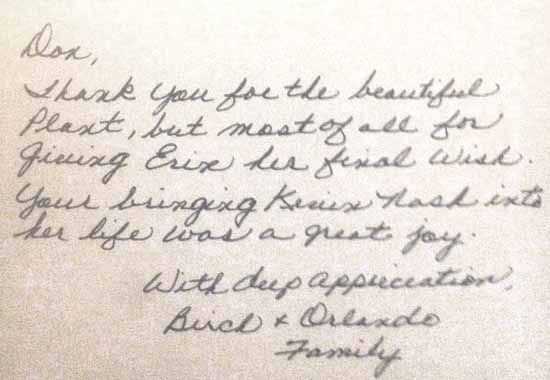 Don,
Thank you for the beautiful
Plant, but most of all for
giving Erin her final wish.
Your bringing Kevin Nash into
her life was a great joy.
With deep appreciation,
Birch & Orlando
Family